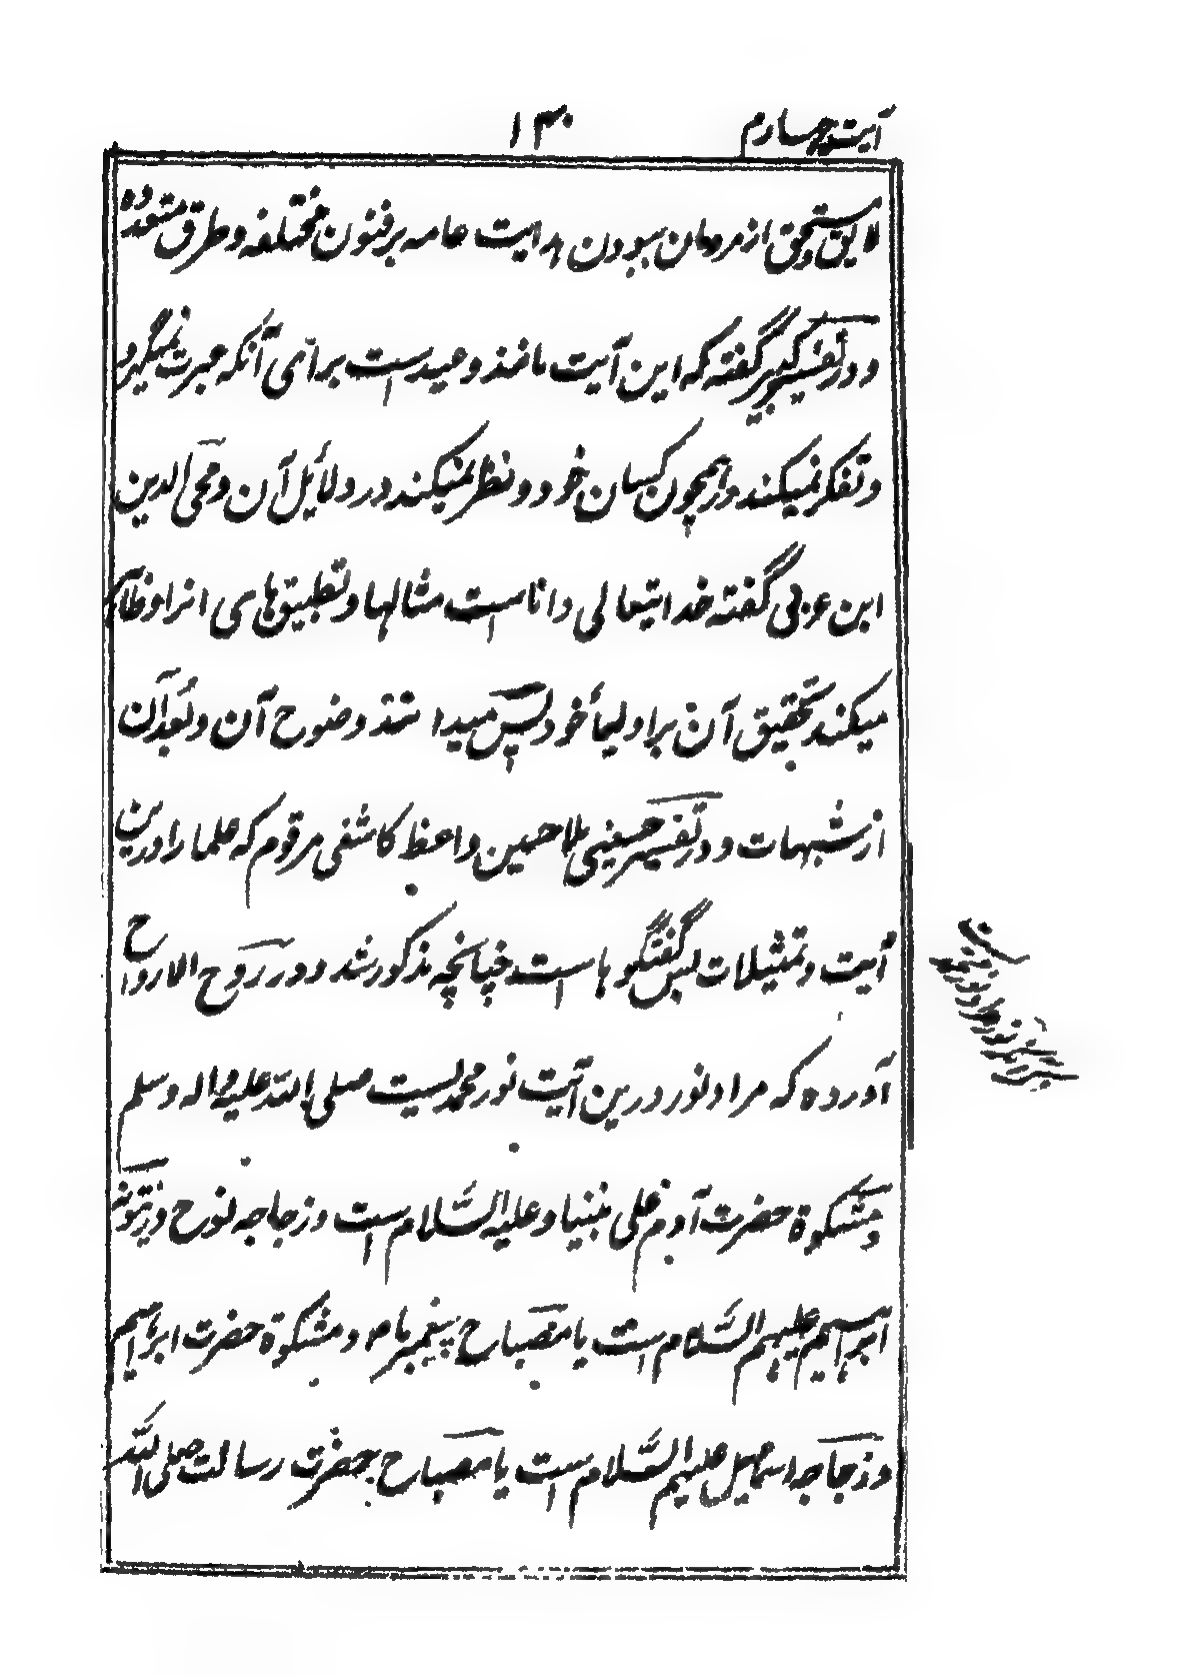 آیت چهارم ۱۳۰
لایق و مستحق از مردمان سبودن هدایت عامه بر فنون مختلفه و طرق متعدده
و در تفسیر کبیر گفته که این آیت مانند وعید است برای آنکه عبرت نمیگیرد
و تفکر نمیکند در همچون کسان خود و نظر نمیکند در دلائل آن و محی الدین
ابن عربی گفته خدایتعالی دانا است مثالها و تطبیق های انرا و ظاهر
میکند تحقیق آن بر اولیاء خود پس میدانند وضوح آن و بُعد آن
از شبهات و در تفسیر حسینی ملا حسین واعظ کاشفی مرقوم که علما را درین
آیت و تمثیلات بس گفتگوها است چنانچه مذکور شد و در روح الارواح
آورده که مراد نور درین آیت نور محمدیست صلی الله علیه و اله وسلم
و مشکوة حضرت آدم علی نبینا و علیه السّلام است و زجاجه نوح و زیتونه
ابراهیم علیهم السّلام است یا مصباح پیغمبر ما م و مشکوة حضرت ابراهیم
و زجاجه اسماعیل علیهم السّلام است یا مصباح حضرت رسالت صلی الله